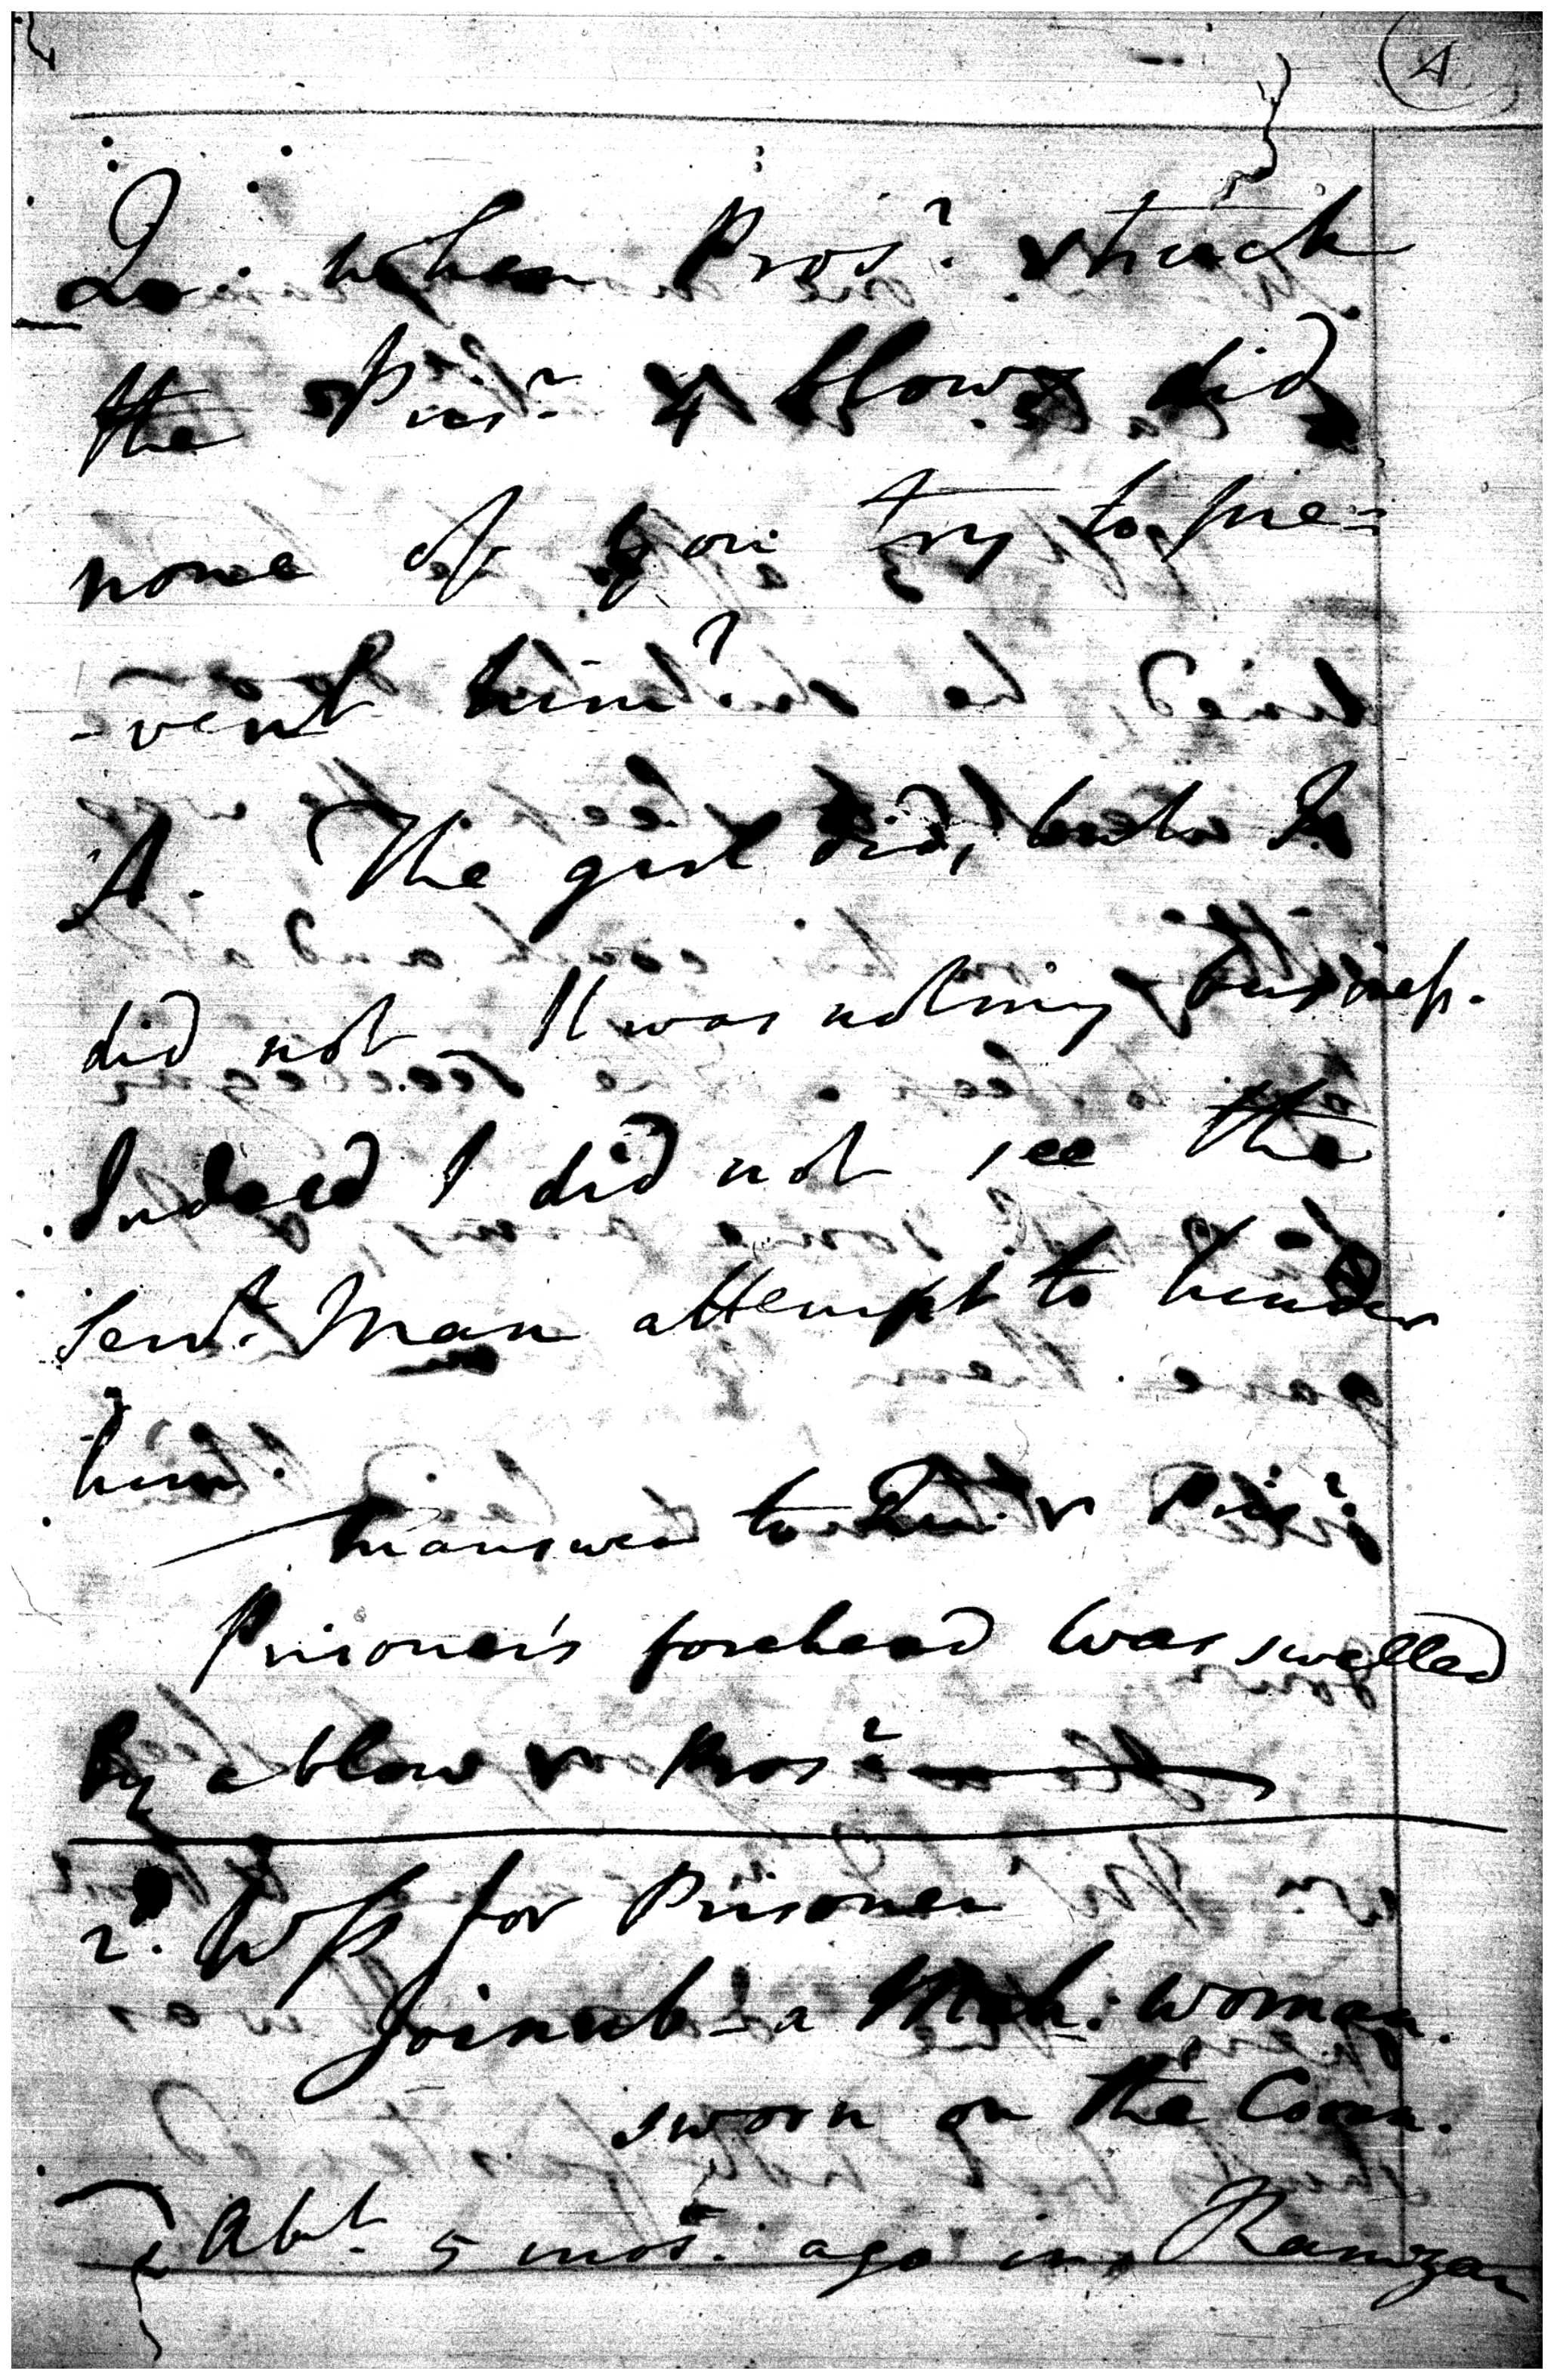 A
Q. when Pros.r struck
the Pris.r 4 blows did
none of you try to pre=
-vent him?
A. The girl did, but I
did not. It was not my business.
Indeed I did not see the
Serv.t Man attempt to hinder
him.
In answer to Pris.r
Prisoner's forehead was swelled
by a blow Pros.r
2. Wss for Prisoner
Joinub - a Moh: woman.
sworn on the Coran.
Abt. 5 mos. ago in Ramzan